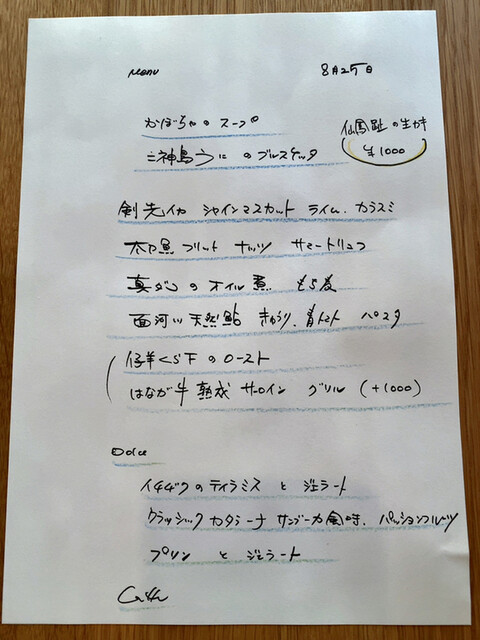 Menu
8月25日
かぼちゃのスープ
仙鳳趾の生かき
¥1000
二神島うにのブルスケッタ
剣先イカ シャインマスカット ライム、カラスミ
太刀魚フリット ナッツ サマートリュフ
真ダコのオイル煮
面河川天然鮎 きゅうり、青トマト パスタ
仔羊くらし下のロースト
はなが牛熟成 サーロイン グリル (+1000)
Dolce
イチヂクのティラミスとジェラート
クラッシックカタラーナ サンブーカ風味、パッションフルーツ
プリン とジェラート
Caffe